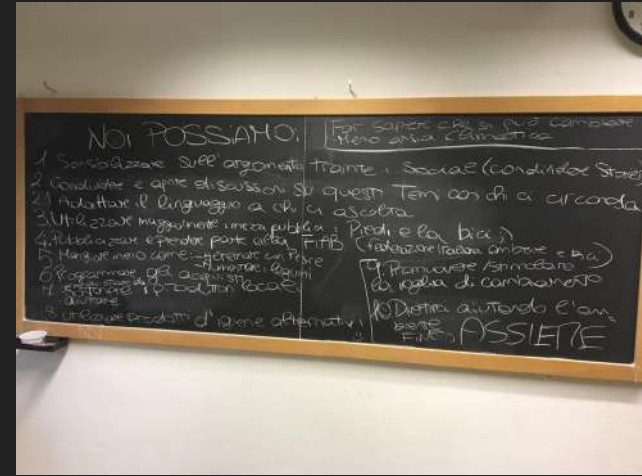 NOI POSSIAMO:
Far sapere che si può cambiare
Meno ansia climatica
1 Sensibilizzare sull'argomento tramite i social (condividere Stories)
2 Condividere e aprire discussioni su questi Temi con chi ci circonda
2.1 Adattare il linguaggio a chi ci ascolta
3. Utilizzare maggiormente i mezzi pubblici, i Piedi e la bici
4. Pubblicizzare e prendere parte alla FIAB
(federazione italiana ambiente e bici)
5 Mangiare meno carne
alternare con Pesce
legumi
6 Programmare gli acquisti
7 i produttori locali
aiutare
8 Utilizzare prodotti d'igiene alternativi
9. Promuovere / stimolare
la voglia di cambiamento
10 aiutando l'am-
biente
ASSIEME